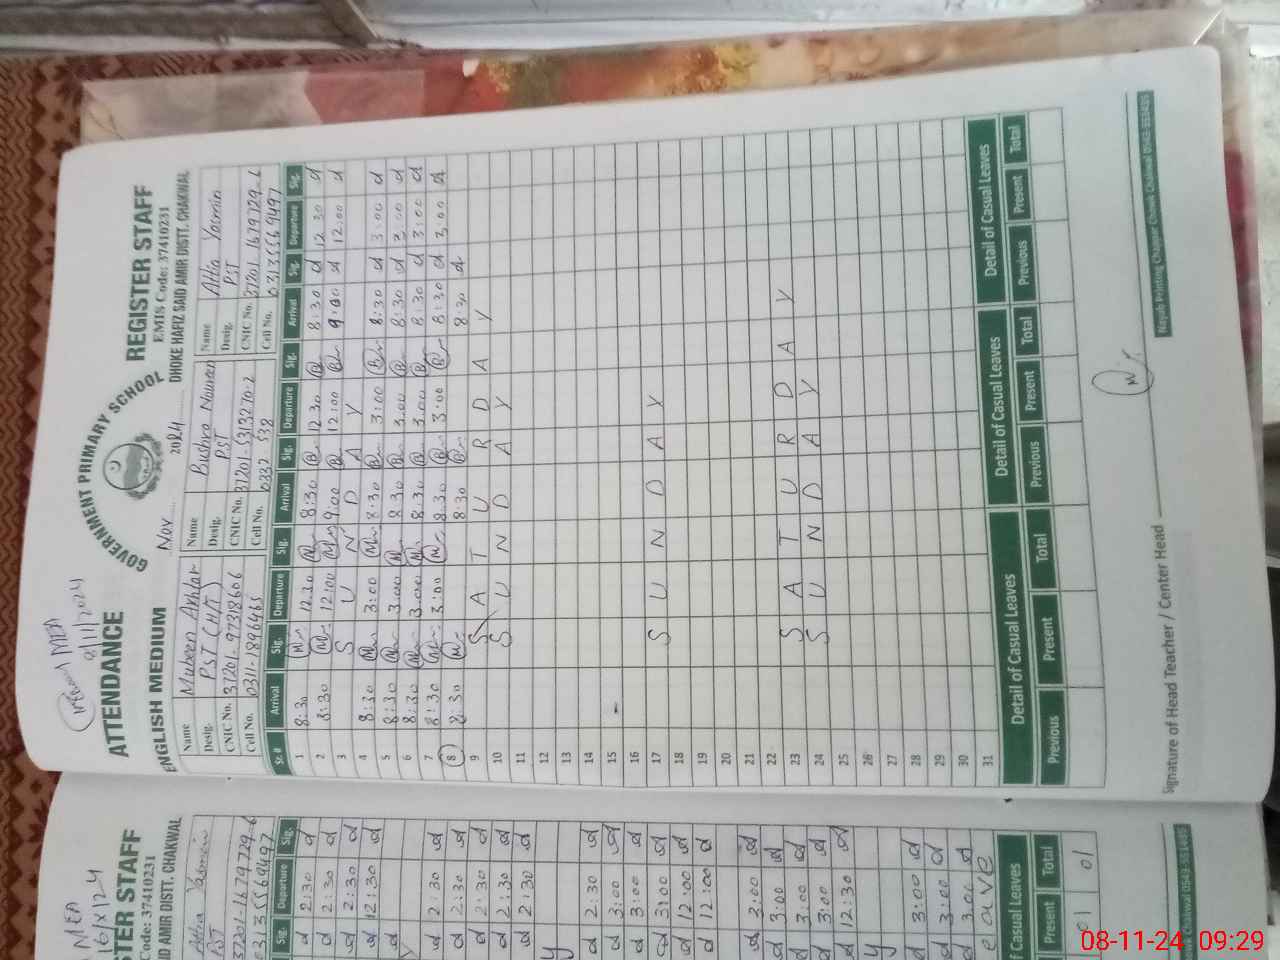 8/11/2024
GOVERNMENT PRIMARY SCHOOL
ATTENDANCE REGISTER STAFF
EMIS Code: 37410231
ENGLISH MEDIUM Nov 2024 DHOKE HAFIZ SAID AMIR DISTT. CHAKWAL
Name Mubeen Akhtar Name Bushra Noureen Name Attia Yasmin
Desig. PST (H/T) Desig. PST Desig. PST
CNIC No. 37201-9731860 6 CNIC No. 37201-5313270-2 CNIC No. 37201-1679729-6
Cell No. 0311-1896465 Cell No. 0332 538 Cell No. 03135569497
Sr. # Arrival Sig. Departure Sig. Arrival Sig. Departure Sig. Arrival Sig. Departure Sig.
1 8:30 12.30 8:30 12.30 8:30 12.30
2 8:30 12:00 9:00 12:00 9:00 12:00
3 S U N D A Y
4 8:30 3:00 8:30 3:00 8:30 3:00
5 8:30 3.00 8:30 3.00 8:30 3.00
6 8:30 3.00 8:30 3.00 8:30 3:00
7 8:30 3:00 8:30 3:00 8:30 3.00
8 8:30 8:30 8:30
9 S A T U R D A Y
10 S U N D A Y
11
12
13
14
15
16
17 S U N D A Y
18
19
20
21
22
23 S A T U R D A Y
24 S U N D A Y
25
26
27
28
29
30
31
Detail of Casual Leaves Detail of Casual Leaves Detail of Casual Leaves
Previous Present Total Previous Present Total Previous Present Total
Signature of Head Teacher / Center Head
Nayab Printing Chappar Chowk Chakwal 0543-553485
MEA
STER STAFF
Code: 37410231
AMIR DISTT. CHAKWAL
Attia Yasmin
PST
37201-1679729-6
03135569497
Sig. Departure Sig.
2:30
2:30
2:30
12:30
Y
2:30
2:30
2:30
2:30
2:30
Y
2:30
3:00
3:00
3:00
12:00
12:00
3:00
3:00
3:00
3:00
12:30
Y
3:00
3:00
3.00
eave
f Casual Leaves
Present Total
01 01
08-11-24 09:29